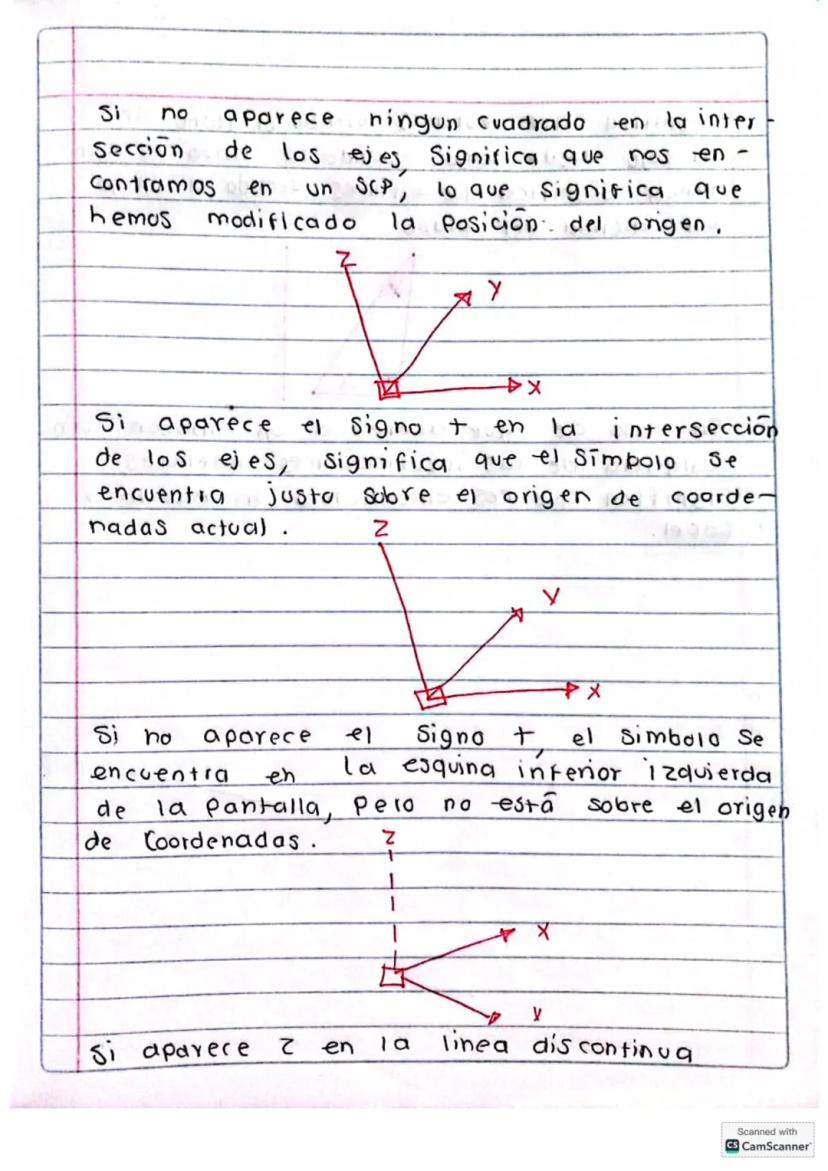 Si no aparece ningun cuadrado en la inter-
sección de los ejes, Significa que nos en-
contramos en un SCP, lo que significa que
hemos modificado la posición del origen.
Z
Y
X
Si aparece el signo + en la intersección
de los ejes, significa que el símbolo se
encuentra justo sobre el origen de coorde-
nadas actual.
Z
Y
X
Si no aparece el signo +, el simbolo se
encuentra en la esquina inferior izquierda
de la pantalla, pero no está sobre el origen
de Coordenadas.
Z
X
Y
Si aparece Z en la linea discontinua
Scanned with
CS CamScanner